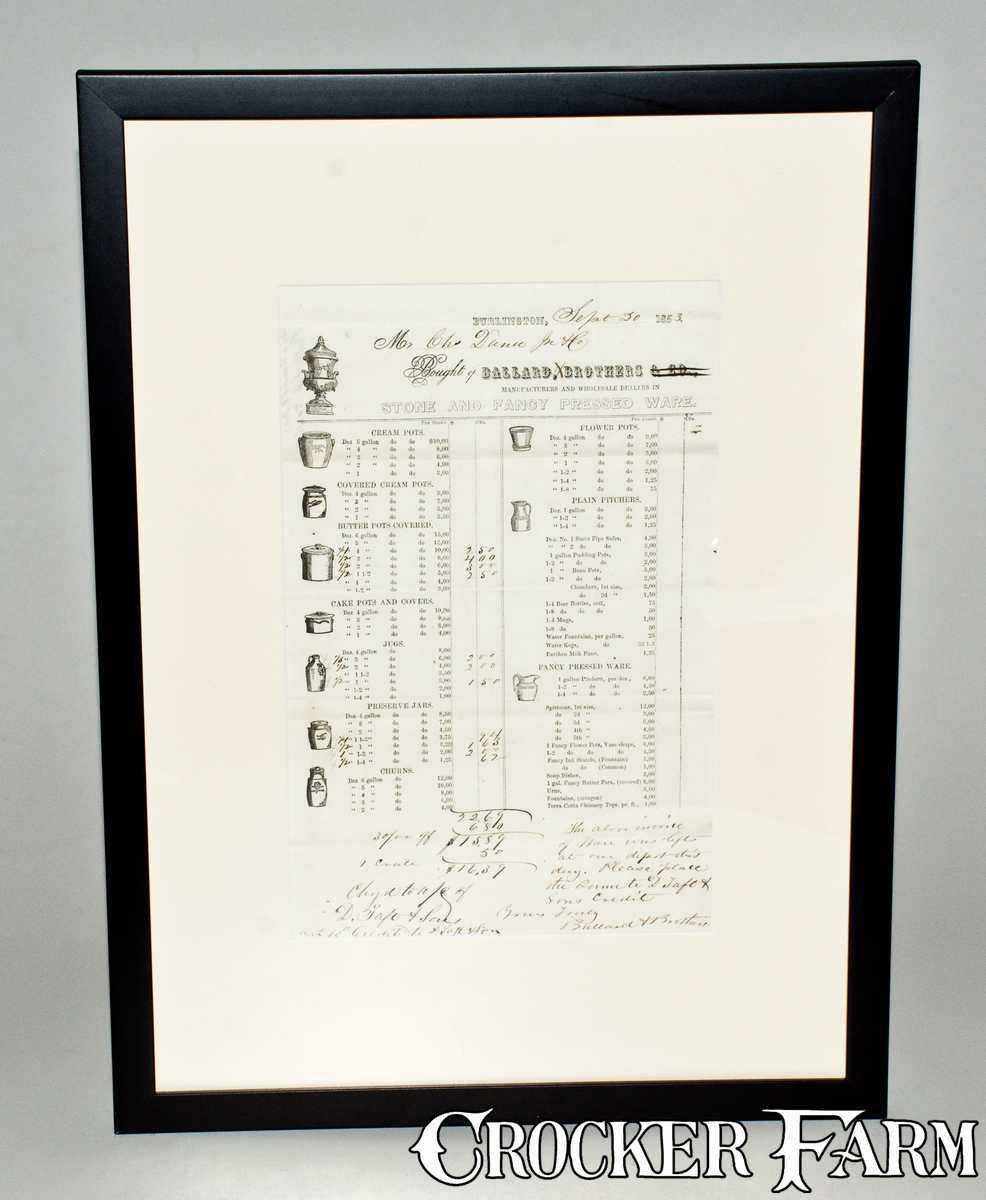 BURLINGTON, Sept 30 1853.
Mr Chs Dana Jr & Co
Bought of BALLARD & BROTHERS & CO.,
MANUFACTURERS AND WHOLESALE DEALERS IN
STONE AND FANCY PRESSED WARE.
Per Dozen. $ Cts.
CREAM POTS.
Doz. 6 gallon do do $10,00
" 4 " do do 8,00
" 3 " do do 6,00
" 2 " do do 4,00
" 1 do do
COVERED CREAM POTS.
Doz. 4 gallon do do
" 3 " do do 7,00
" 2 " do do 5,00
" 1 " do do
BUTTER POTS COVERED.
Doz. 6 gallon do do 15,00
" 5 " do do 12,00
4 " do do 10,00 2 50
3 " do do 8,00 4 00
2 " do do 6,00 3 00
1 1-2 do do 5,00 2 50
" 1 " do do 4,00
" 1-2 " do do 3,00
CAKE POTS AND COVERS.
Doz 4 gallon do do 10,00
" 3 " do do
" 2 " do do
" 1 " do do 4,00
JUGS.
Doz. 4 gallon do do 8,00
3 " do do 6,00 2 00
2 " do do 4,00 2 00
" 1 1-2 do do 3,50
1/2 " 1 " do do 3,00 1 50
" 1-2 " do do 2,00
" 1-4 " do do 1,00
PRESERVE JARS.
Doz 4 gallon do do 8,50
" 3 " do do 7,00
" 2 " do do 4,50
1 1-2 " do do 3,75
1/2 " 1 " do do 3,25 1 63
1 " 1-2 " do do 2,00 2 00
1/2 " 1-4 " do do 1,25 62
CHURNS.
Doz 6 gallon do 12,00
" 5 " do 10,00
" 4 " do 8,00
" 3 " do 6,00
" 2 " do 4,00
22,69
30/00 off 6 80
$15,89
1 Crate 50
$16,39
Chgd to a/c of
D. Taft & Sons
Credit to D Taft & Son
FLOWER POTS.
Doz. 4 gallon do do
" 3 " do do 7,00
" 2 " do do 5,00
" 1 " do do
" 1-2 " do do 2,00
" 1-4 " do do 1,25
" 1-8 " do do 75
PLAIN PITCHERS.
Doz. 1 gallon do do 3,00
" 1-2 " do do 2,00
" 1-4 " do do 1,25
Doz. No. 1 Stove Pipe Safes, 4,00
" " 2 do do 3,00
1 gallon Pudding Pots, 3,00
1-2 " do do 2,00
1 " Bean Pots, 3,00
1-2 " do do 2,00
Chambers, 1st size, 2,00
do 2d " 1,50
1-4 Beer Bottles, 75
1-8 do do do 50
1-4 Mugs, 1,00
1-8 do 50
Water Fountains, per gallon, 25
Water Kegs, do
Earthen Milk Pans, 1,25
FANCY PRESSED WARE.
1 gallon Pitchers, per doz., 6,00
1-2 " do do 4,50
1-4 " do do 2,50
Spittoons, 1st size, 12,00
do 2d "
do 3d "
do 4th "
do 5th "
1 Fancy Flower Pots, Vase shape,
1-2 do do do
Fancy Ink Stands, (Fountain)
do do (Common)
Soap Dishes,
1 gal. Fancy Butter Pots, (covered)
Urns,
Fountains, (octagon)
Terra Cotta Chimney Tops, pr ft., 1,00
The above invoice
of Ware was left
at our depot this
day. Please place
the same to D. Taft &
sons credit
Yours Truly
Ballard & Brothers
CROCKER FARM